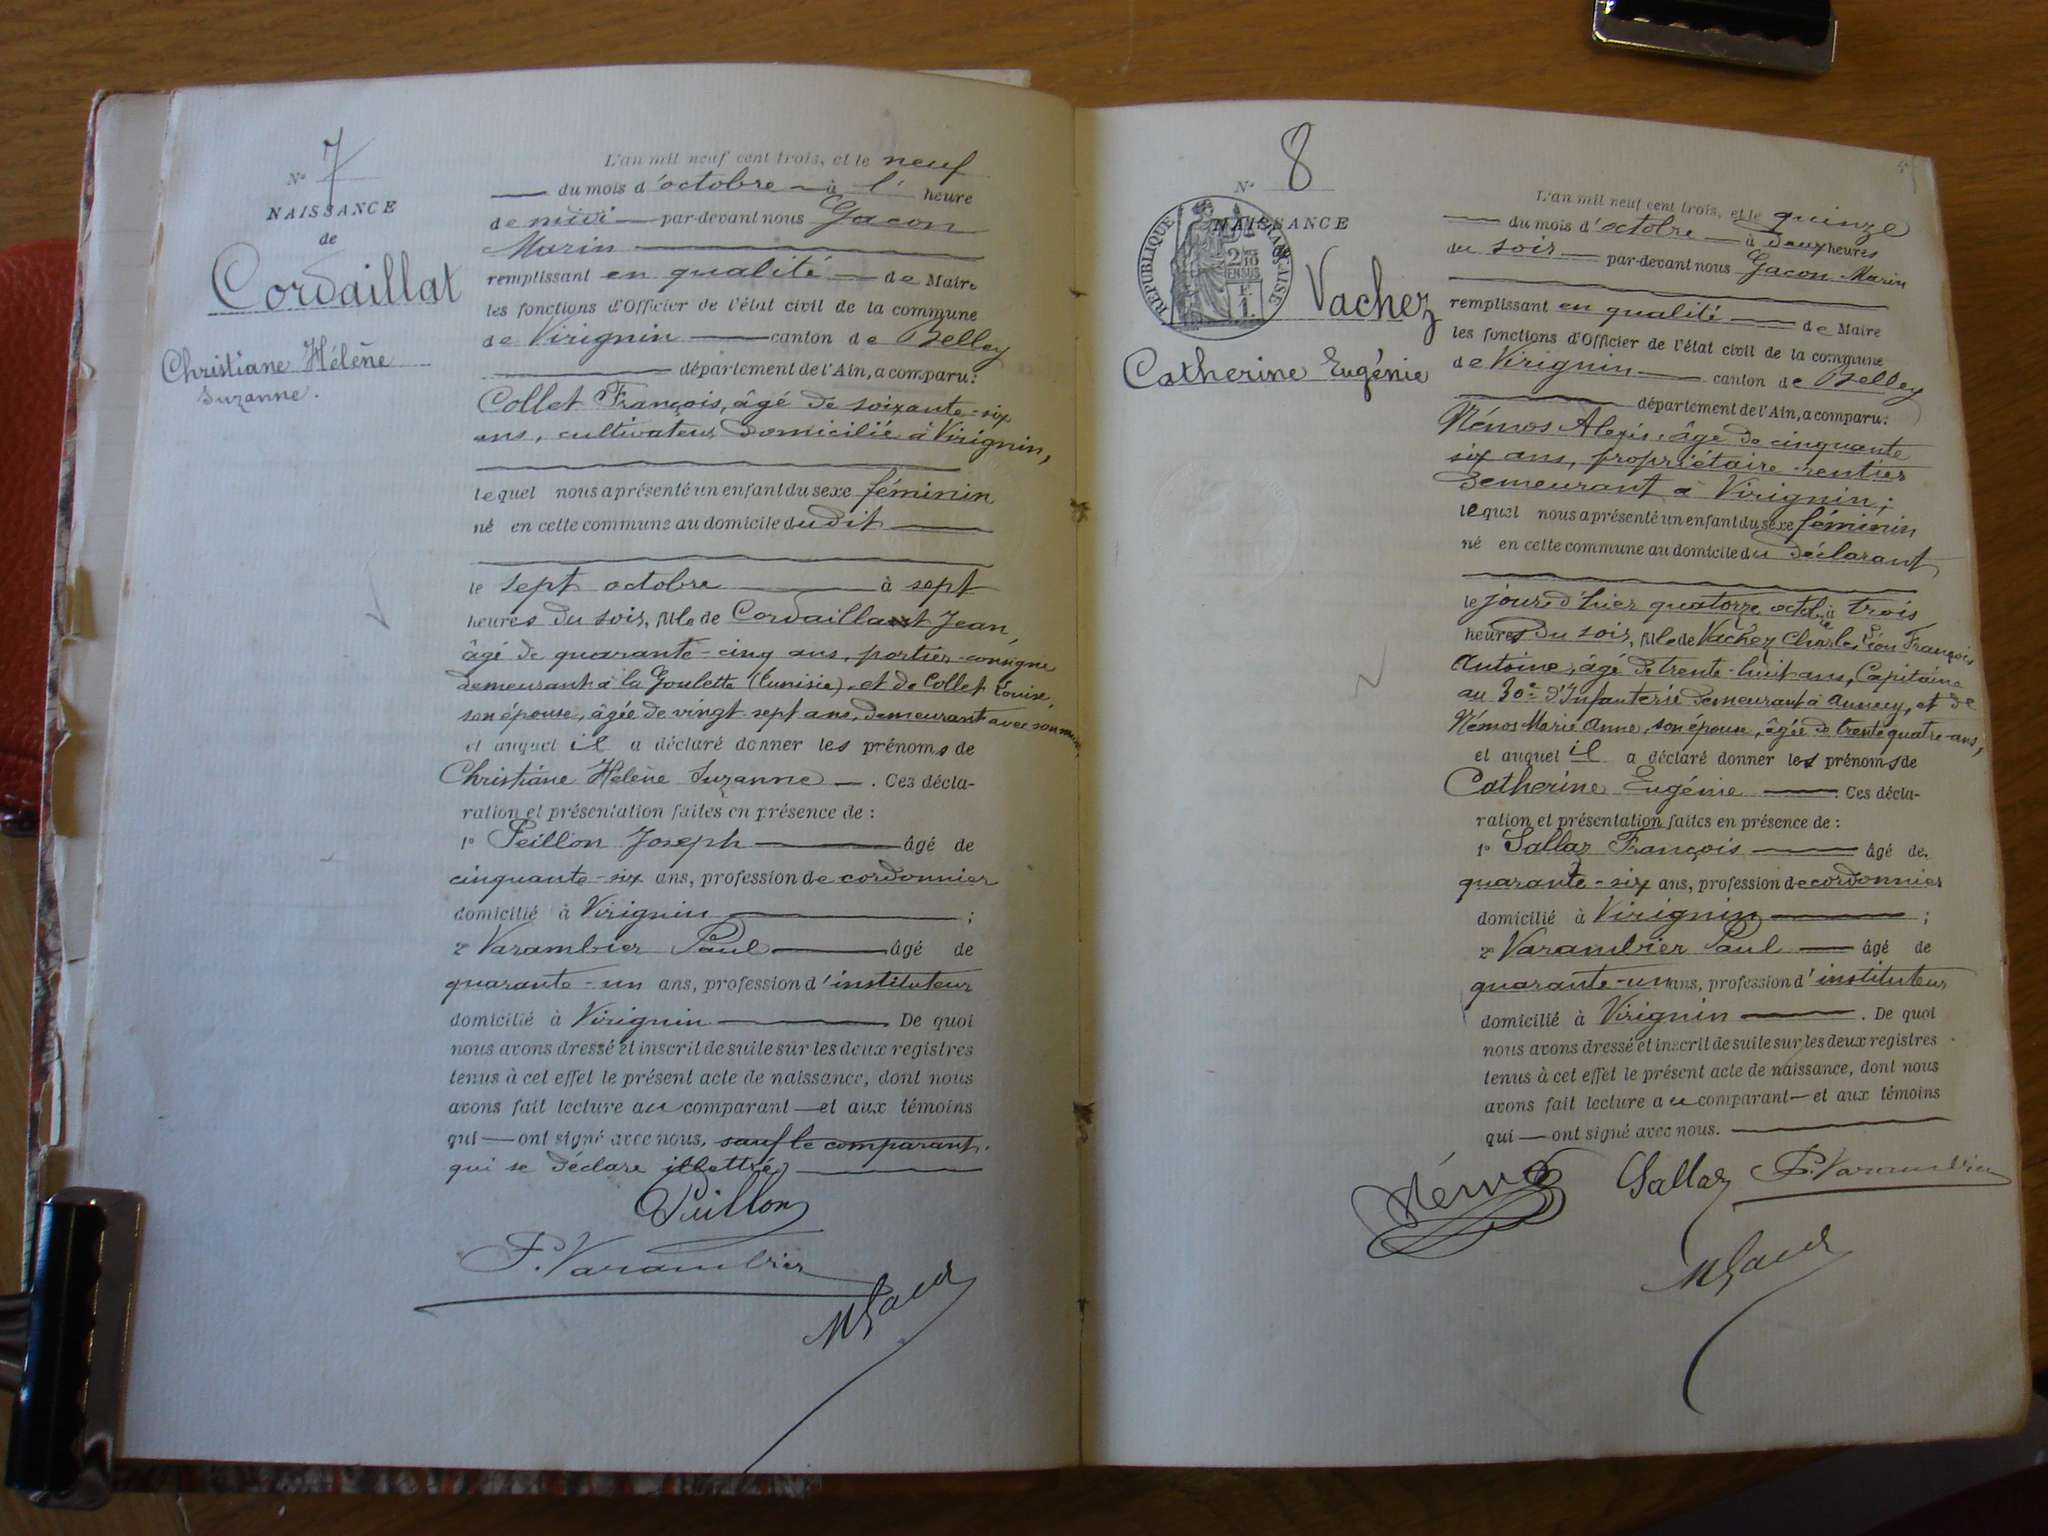 N° 7
NAISSANCE
de
Cordaillat
Christiane Hélène
Suzanne.
L'an mil neuf cent trois, et le neuf
du mois d'octobre à l' heure
de midi par-devant nous Gacon
Marin
remplissant en qualité de Maire
les fonctions d'Officier de l'état civil de la commune
de Virignin canton de Belley
département de l'Ain, a comparu:
Collet François, âgé de soixante-six
ans, cultivateur domicilié à Virignin,
lequel nous a présenté un enfant du sexe féminin
né en cette commune au domicile dudit
le sept octobre à sept
heures du soir, fille de Cordaillat Jean,
âgé de quarante-cinq ans, portier-consigne
demeurant à la Goulette (Tunisie), et de Collet Louise,
son épouse, âgée de vingt-sept ans, demeurant avec son mari,
et auquel il a déclaré donner les prénoms de
Christiane Hélène Suzanne . Ces décla-
ration et présentation faites en présence de :
1° Peillon Joseph âgé de
cinquante-six ans, profession de cordonnier
domicilié à Virignin ;
2° Varambier Paul âgé de
quarante-un ans, profession d'instituteur
domicilié à Virignin . De quoi
nous avons dressé et inscrit de suite sur les deux registres
tenus à cet effet le présent acte de naissance, dont nous
avons fait lecture au comparant et aux témoins
qui ont signé avec nous, sauf le comparant
qui se déclare illettré
Peillon
P. Varambier
M Gacon
N° 8
NAISSANCE
de
RÉPUBLIQUE FRANÇAISE
2/10 EN SUS
1 F.
Vachez
Catherine Eugénie
L'an mil neuf cent trois, et le quinze
du mois d'octobre à deux heures
du soir par-devant nous Gacon Marin
remplissant en qualité de Maire
les fonctions d'Officier de l'état civil de la commune
de Virignin canton de Belley
département de l'Ain, a comparu:
Némos Alexis, âgé de cinquante
six ans, propriétaire-rentier
demeurant à Virignin ;
lequel nous a présenté un enfant du sexe féminin
né en cette commune au domicile du déclarant
le jour d'hier quatorze octobre à trois
heures du soir, fille de Vachez Charles Léon François
Antoine, âgé de trente-huit ans, Capitaine
au 30e d'Infanterie demeurant à Annecy, et de
Némos Marie Anne, son épouse, âgée de trente quatre ans,
et auquel il a déclaré donner les prénoms de
Catherine Eugénie . Ces décla-
ration et présentation faites en présence de :
1° Sallaz François âgé de
quarante-six ans, profession de cordonnier
domicilié à Virignin ;
2° Varambier Paul âgé de
quarante-un ans, profession d'instituteur
domicilié à Virignin . De quoi
nous avons dressé et inscrit de suite sur les deux registres
tenus à cet effet le présent acte de naissance, dont nous
avons fait lecture au comparant et aux témoins
qui ont signé avec nous.
Némos Sallaz P. Varambier
M Gacon